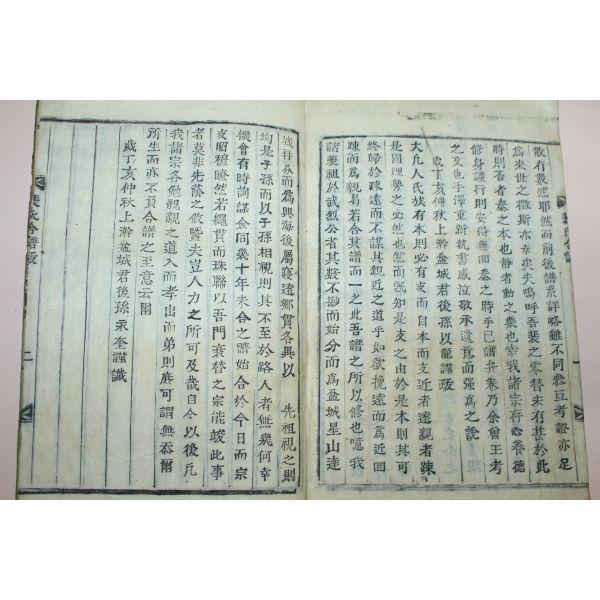 散有數然耶然而前後譜系詳略雖不同參互考證亦足
爲來世之徵斯亦幸矣夫嗚呼吾裴之零替未有甚於此
時則否者泰之本也靜者動之義也幸我諸宗存心養德
修身謹行則安得無回泰之時乎已譜弁卷乃余曾王考
之文也手澤重新執書感泣敬承遺意而强爲之說
歲丁亥仲秋上澣盆城君後孫以龍謹跋
大凡人氏族有本則必有支而自本而支近者遠親者疎
是固理勢之必然也然旣知是支之由於是本則其可
終歸於疎遠而不謀其親近之道乎如欲挽遠而爲近回
疎而爲親易若合其譜而一之此吾譜之所以修也噫我
諸裴祖於武烈公者其麗不尠而始分而爲盆城星山達
城再分而爲興海後屬寢遠鄕貫各異以 先祖視之則
均是子孫而以子孫相視則其不至於路人者無幾何幸
機會有時詢謀僉同幾十年未合之譜始合於今日而宗
支昭穆瞭然若繩貫而珠聯以吾門衰替之宗能竣此事
者莫非先蔭之攸曁夫豈人力之所可及哉自今以後凡
我諸宗各勉親親之道入而孝出而弟則庶可謂無忝爾
所生而亦不負合譜之至意云爾
歲丁亥仲秋上澣盆城君後孫永奎謹識
裴氏合譜跋
二